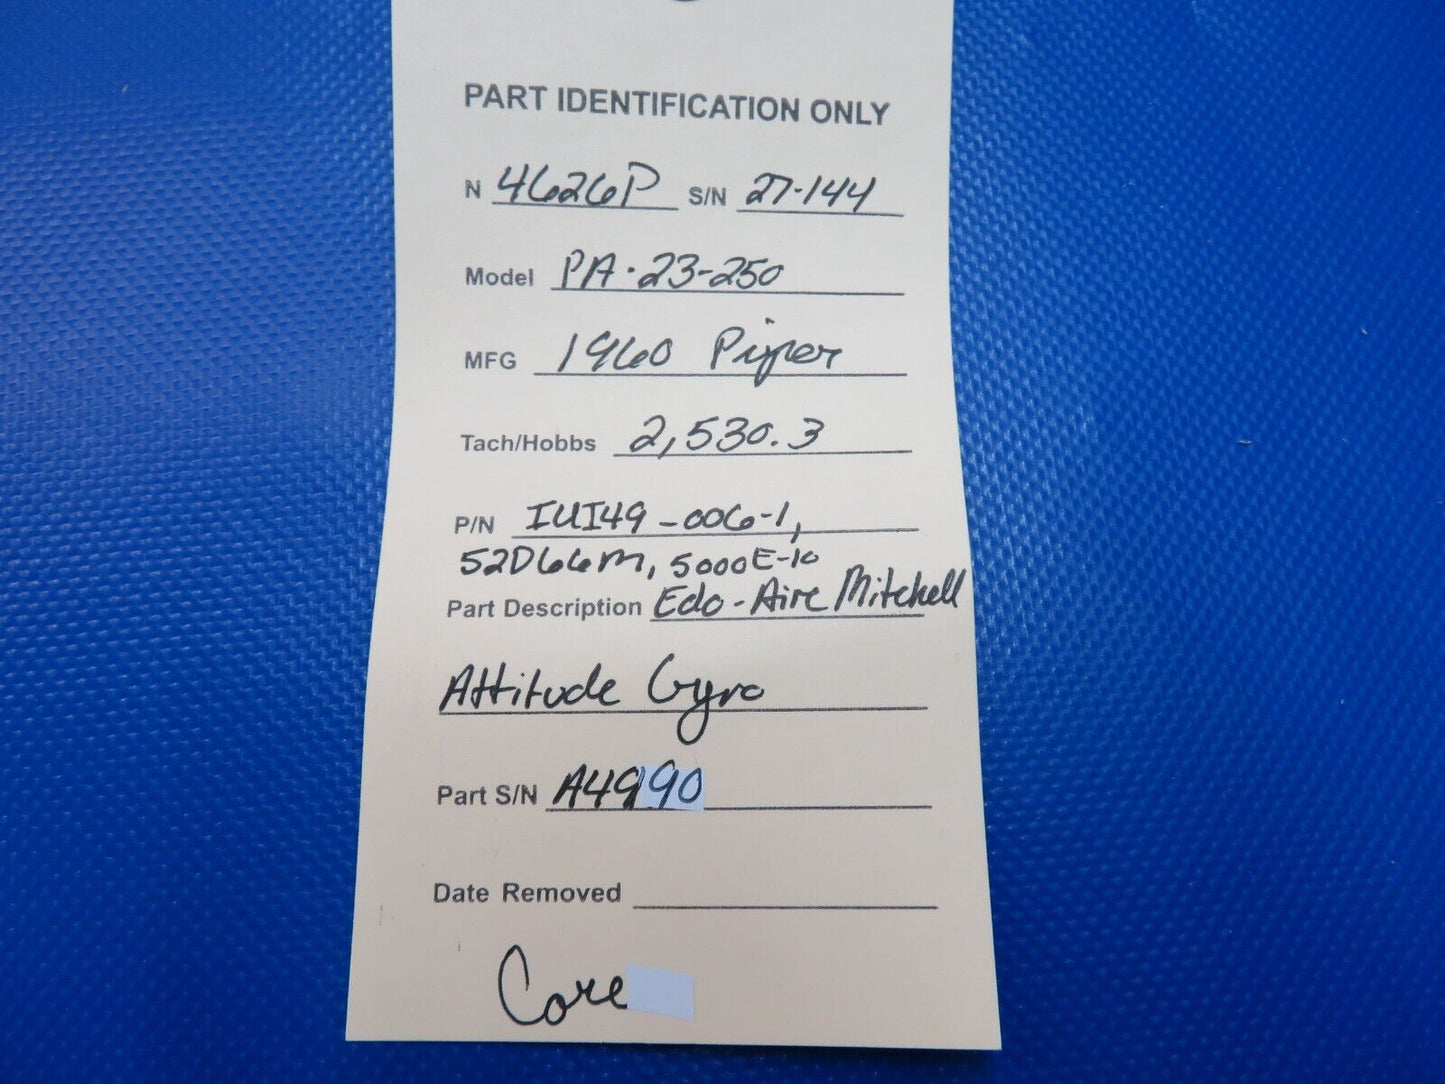 PART IDENTIFICATION ONLY
N 4626P S/N 27-144
Model PA-23-250
MFG 1960 Piper
Tach/Hobbs 2,530.3
P/N IUI49-006-1,
52D66M, 5000E-10
Part Description Edo-Aire Mitchell
Attitude Gyro
Part S/N A4990
Date Removed
Core